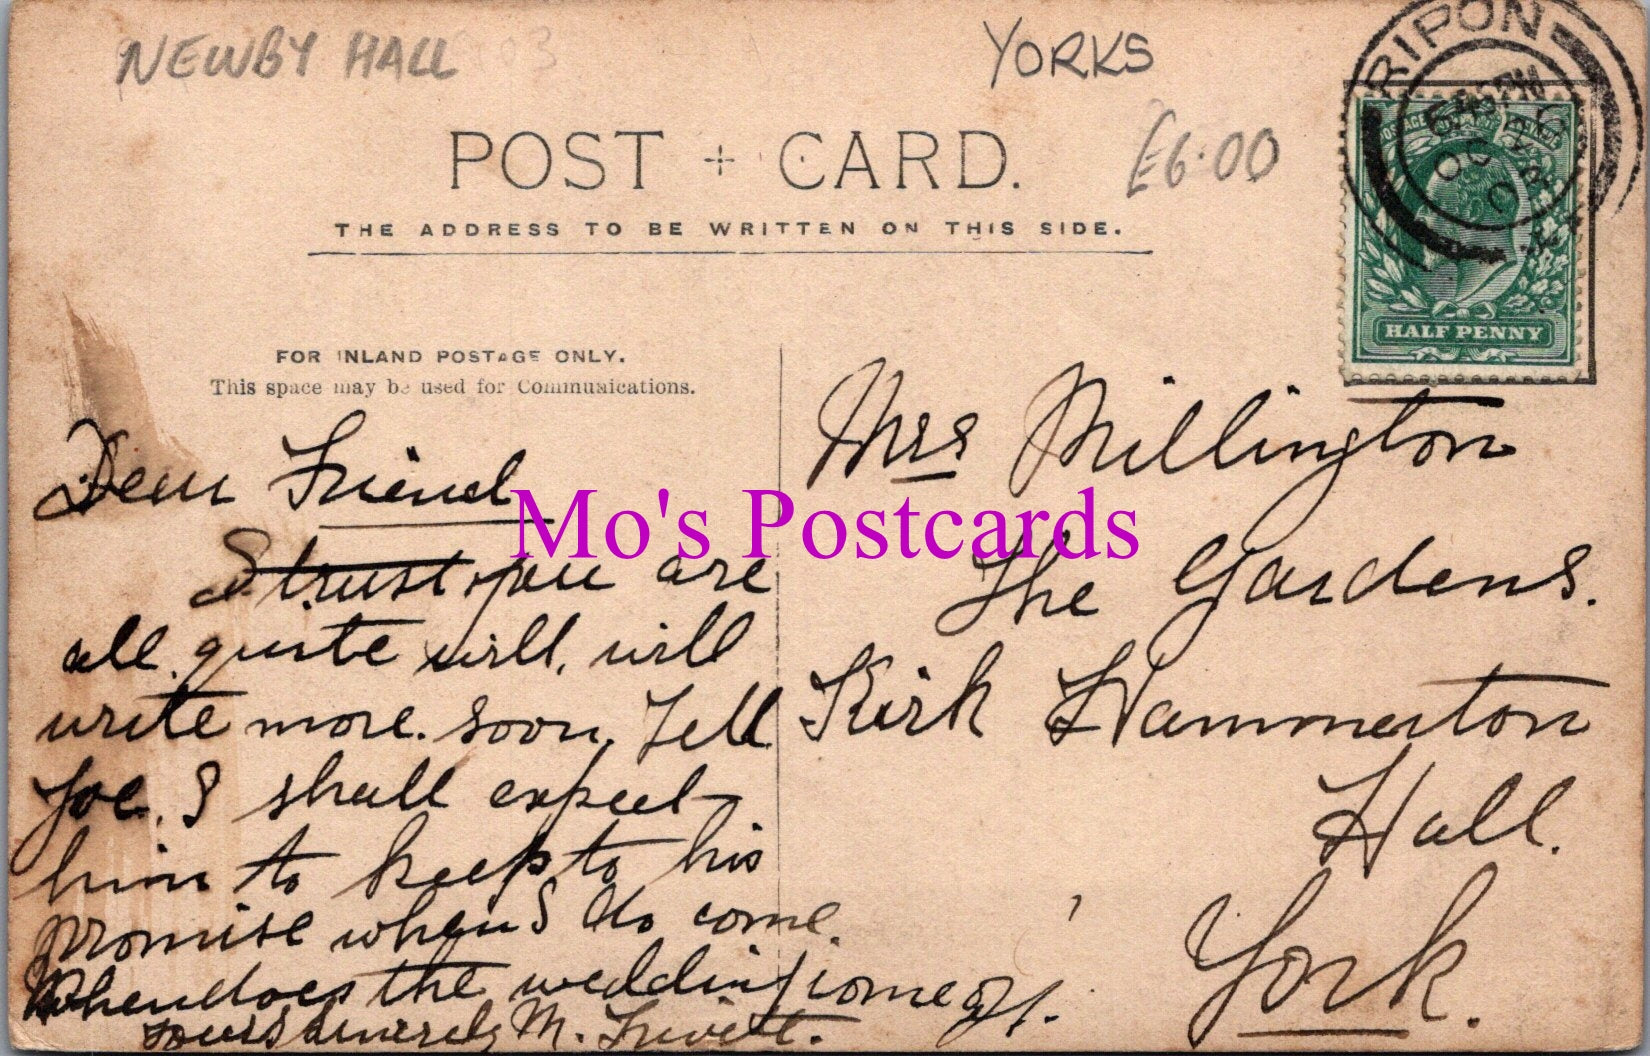 NEWBY HALL
YORKS
£6.00
RIPON
POST CARD.
THE ADDRESS TO BE WRITTEN ON THIS SIDE.
HALF PENNY
FOR INLAND POSTAGE ONLY.
This space may be used for Communications.
Dear Friend
I trust you are
all quite well, will
write more soon, Tell
Joe, I shall expect
him to keep to his
promise when I do come.
When does the wedding come of.
yours Sincerely M.
Mrs Millington
The Gardens.
Kirk Hammerton
Hall.
York.
Mo's Postcards